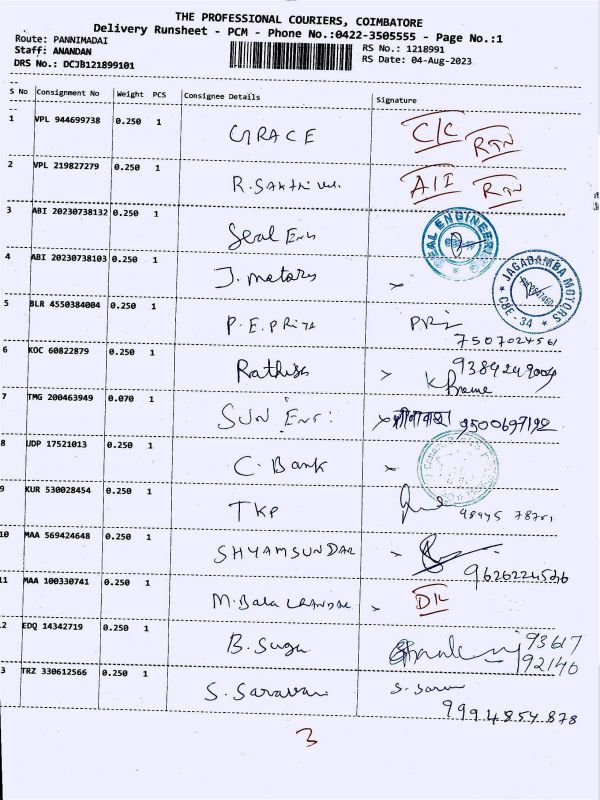 THE PROFESSIONAL COURIERS, COIMBATORE
Delivery Runsheet - PCM - Phone No.:0422-3505555 - Page No.:1
Route: PANNIMADAI
RS No.: 1218991
Staff: ANANDAN
RS Date: 04-Aug-2023
DRS No.: DCJB121899101
S No Consignment No Weight PCS Consignee Details Signature
1 VPL 944699738 0.250 1 GRACE C/C RTN
2 VPL 219827279 0.250 1 R. A/I RTN
3 ABI 20230738132 0.250 1 Seal Eng
4 ABI 20230738103 0.250 1 J. Motors
JAGADAMBA MOTORS
CBE - 34
5 BLR 4550384004 0.250 1 P.E. PRIYA PRI
6 KOC 60822879 0.250 1 9384249009
7 TMG 200463949 0.070 1 SUN 9500697192
8 UDP 17521013 0.250 1 C. Bank
9 KUR 530028454 0.250 1 TKP
10 MAA 569424648 0.250 1 SHYAMSUNDAR
11 MAA 100330741 0.250 1 M. Bala DL
2 EDQ 14342719 0.250 1 B. Sugu 93617
92140
3 TRZ 330612566 0.250 1 S. Saravan S. Sarav
9994854878
3